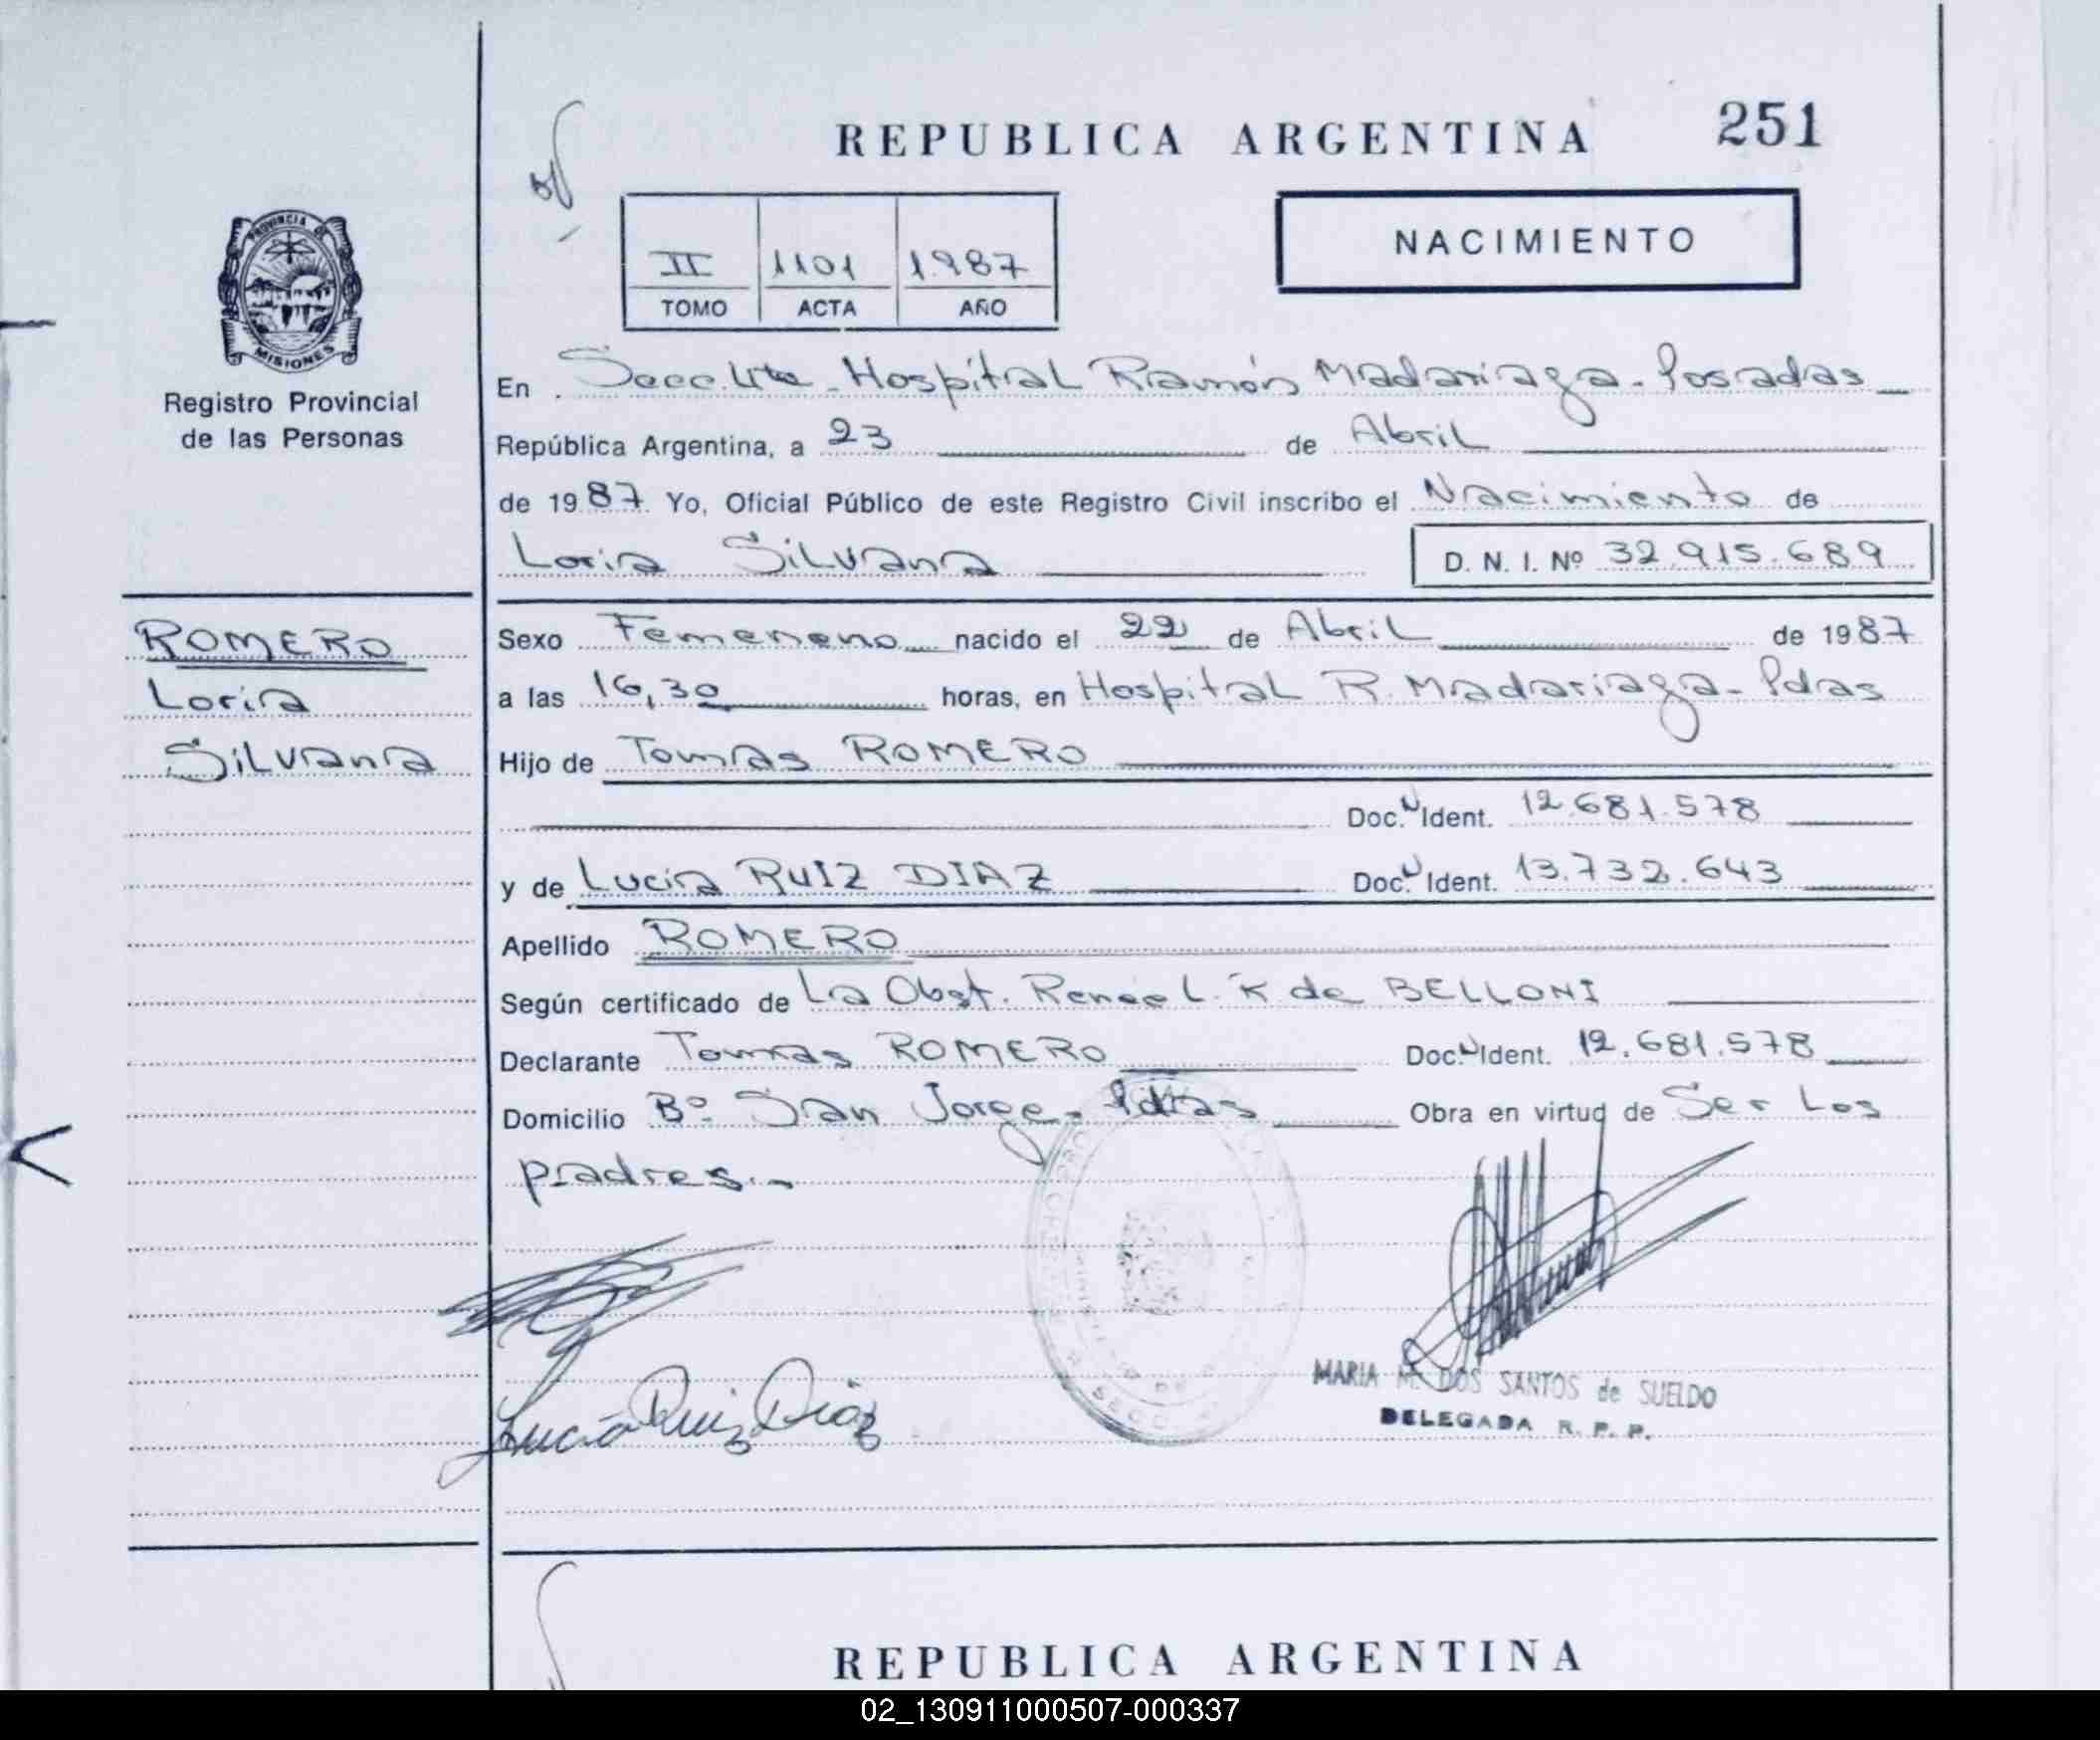 REPUBLICA ARGENTINA 251
II 1101 1987
TOMO ACTA AÑO
NACIMIENTO
PROVINCIA DE
MISIONES
Registro Provincial
de las Personas
En Secc. 4ta - Hospital Ramón Madariaga - Posadas
República Argentina, a 23 de Abril
de 1987. Yo, Oficial Público de este Registro Civil inscribo el Nacimiento de
Loria Silvana D. N. I. Nº 32.915.689
ROMERO
Loria
Silvana
Sexo Femeneno nacido el 22 de Abril de 1987
a las 16,30 horas, en Hospital R. Madariaga - Pdas
Hijo de Tomas ROMERO
Doc. N Ident. 12.681.578
y de Lucia RUIZ DIAZ Doc. N Ident. 13.732.643
Apellido ROMERO
Según certificado de La Obst. Renee L. K de BELLONI
Declarante Tomas ROMERO Doc. N Ident. 12.681.578
Domicilio Bº San Jorge - Pdas Obra en virtud de Ser Los
padres.-
Lucía Ruiz Diaz
MARIA M. DOS SANTOS de SUELDO
DELEGADA R. P. P.
REPUBLICA ARGENTINA
02_130911000507-000337